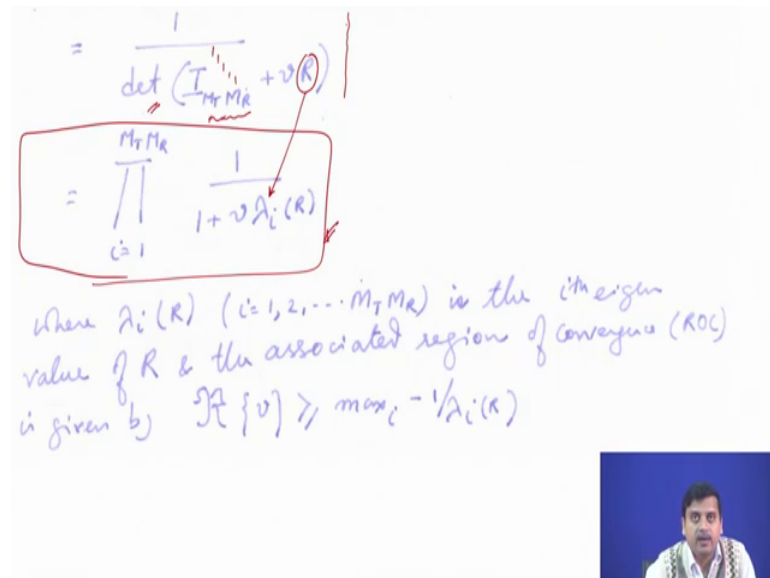 = 1 / det (I_{M_T M_R} + υR)
= ∏_{i=1}^{M_T M_R} 1 / (1 + υ λ_i (R))
where λ_i (R) (i = 1, 2, ... M_T M_R) is the ith eigen
value of R & the associated region of convergence (ROC)
is given by ℜ {υ} ⩾ max_i - 1/λ_i (R)